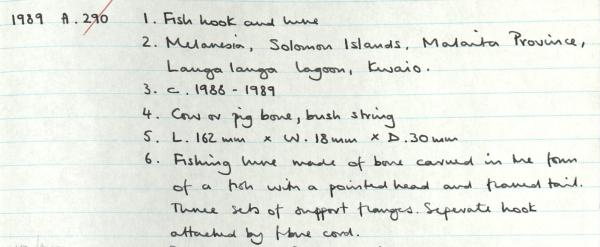 1989 A.290 1. Fish hook and lure
2. Melanesia, Solomon Islands, Malaita Province,
Langa langa lagoon, Kwaio.
3. c. 1986 - 1989
4. Cow or pig bone, bush string
5. L. 162 mm x W. 18mm x D. 30mm
6. Fishing lure made of bone carved in the form
of a fish with a pointed head and flared tail.
Three sets of support flanges. Seperate hook
attached by fibre cord.